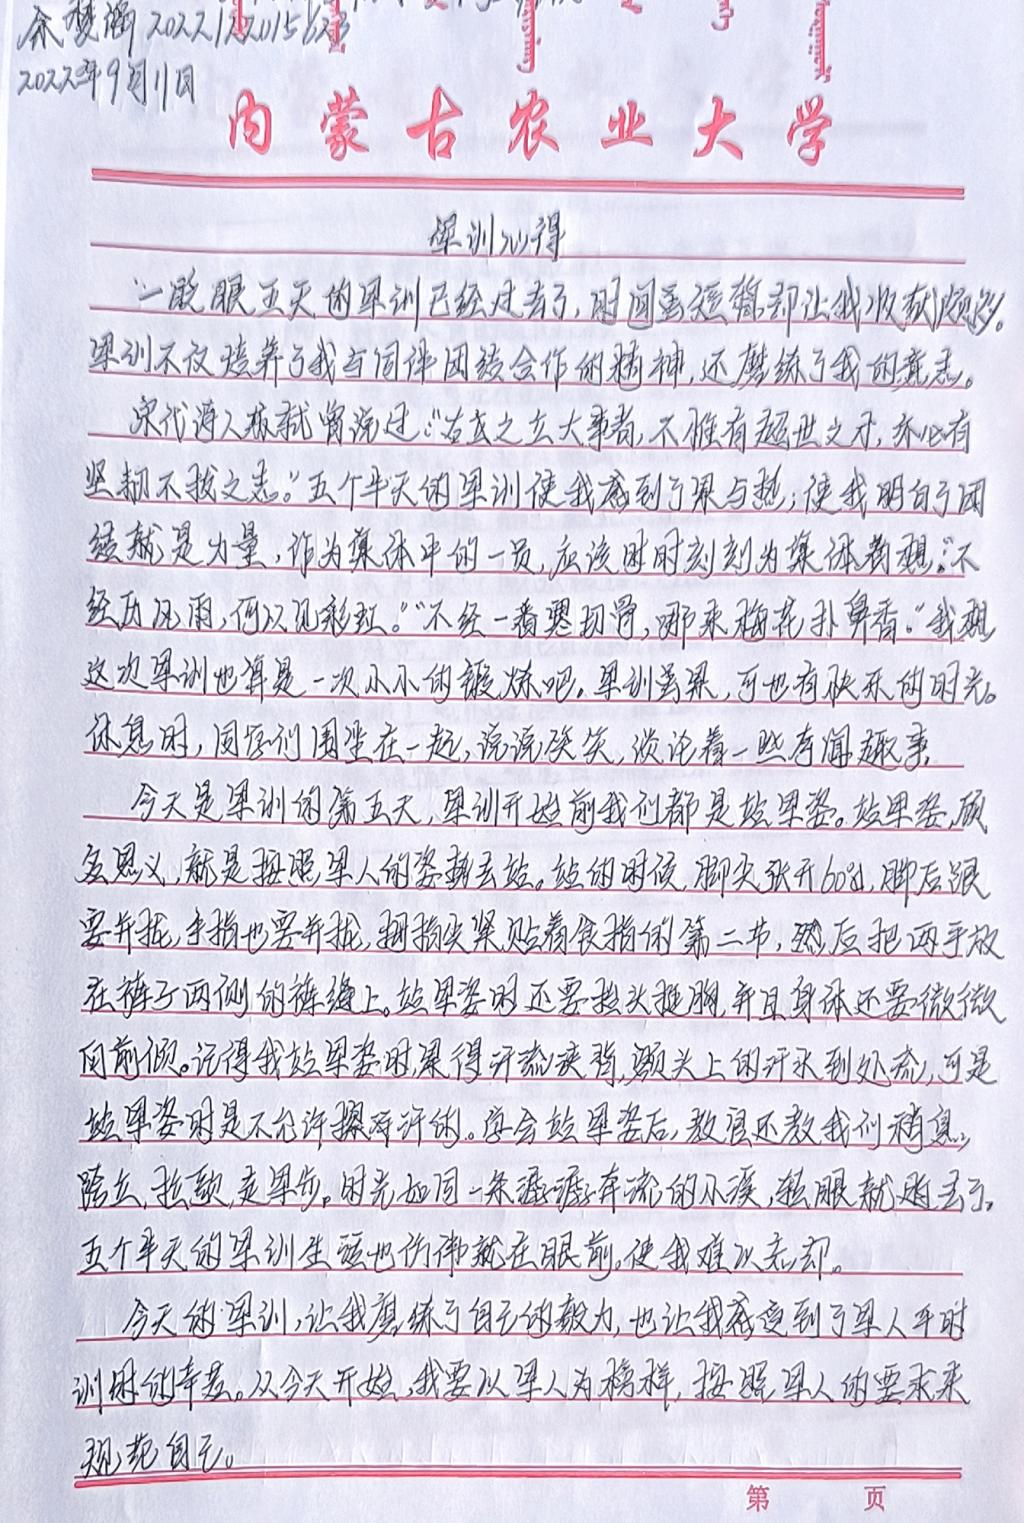 2022年9月11日
内蒙古农业大学
军训心得
一眨眼五天的军训已经过去了,时间虽短暂却让我收获颇多。
军训不仅培养了我与同伴团结合作的精神,还磨练了我的意志。
宋代诗人苏轼曾说过:“古之立大事者,不惟有超世之才,亦必有
坚韧不拔之志。”五个半天的军训使我感到了累与热;使我明白了团
结就是力量,作为集体中的一员,应该时时刻刻为集体着想。“不
经历风雨,何以见彩虹。”“不经一番寒彻骨,那来梅花扑鼻香。”我想
这次军训也算是一次小小的锻炼吧。军训虽累,可也有快乐的时光。
休息时,同学们围坐在一起,说说笑笑,谈论着一些奇闻趣事。
今天是军训的第五天,军训开始前我们都是站军姿。站军姿,顾
名思义,就是按照军人的姿势去站。站的时候,脚尖张开60度,脚后跟
要并拢,手指也要并拢,拇指尖紧贴着食指的第二节,然后把两手放
在裤子两侧的裤缝上。站军姿时还要抬头挺胸,并且身体还要微微
向前倾。记得我站军姿时,累得汗流浃背,额头上的汗水到处流,可是
站军姿时是不允许擦汗的。学会站军姿后,教官还教我们稍息、
跨立,拉歌,走军步。时光如同一条潺潺奔流的小溪,转眼就逝去了。
五个半天的军训生活也仿佛就在眼前,使我难以忘却。
今天的军训,让我磨练了自己的毅力,也让我感受到了军人平时
训时的辛苦。从今天开始,我要以军人为榜样,按照军人的要求来
规范自己。
第 页